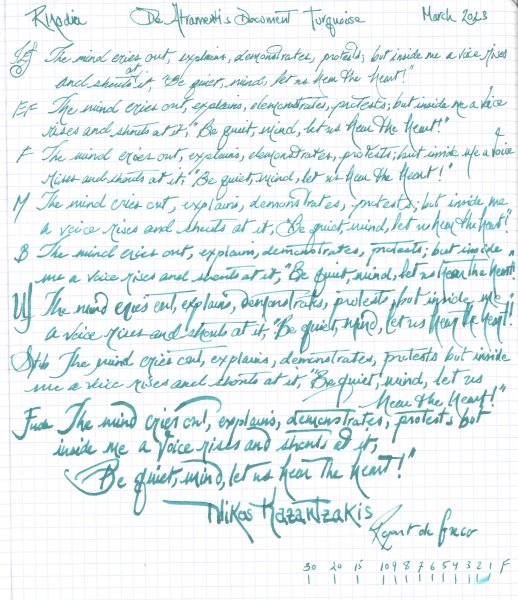 Rhodia De Atramentis Document Turquoise March 2023
The mind cries out, explains, demonstrates, protests; but inside me a voice rises
and shouts at it, "Be quiet, mind, let us hear the heart!"
EF The mind cries out, explains, demonstrates, protests; but inside me a voice
rises and shouts at it, "Be quiet, mind, let us hear the heart!"
F The mind cries out, explains, demonstrates, protests; but inside me a voice
rises and shouts at it, "Be quiet, mind, let us hear the heart!"
M The mind cries out, explains, demonstrates, protests; but inside me
a voice rises and shouts at it, Be quiet, mind, let us hear the heart!"
B The mind cries out, explains, demonstrates, protests; but inside
me a voice rises and shouts at it, "Be quiet, mind, let us hear the heart!"
The mind cries out, explains, demonstrates, protests but inside me
a voice rises and shouts at it, "Be quiet, mind, let us hear the heart!
Stub The mind cries out, explains, demonstrates, protests but inside
me a voice rises and shouts at it, "Be quiet, mind, let us
hear the heart!"
Fude The mind cries out, explains, demonstrates, protests but
inside me a voice rises and shouts at it,
Be quiet, mind, let us hear the heart!"
Nikos Kazantzakis
Report to Greco
30 20 15 10 9 8 7 6 5 4 3 2 1 F